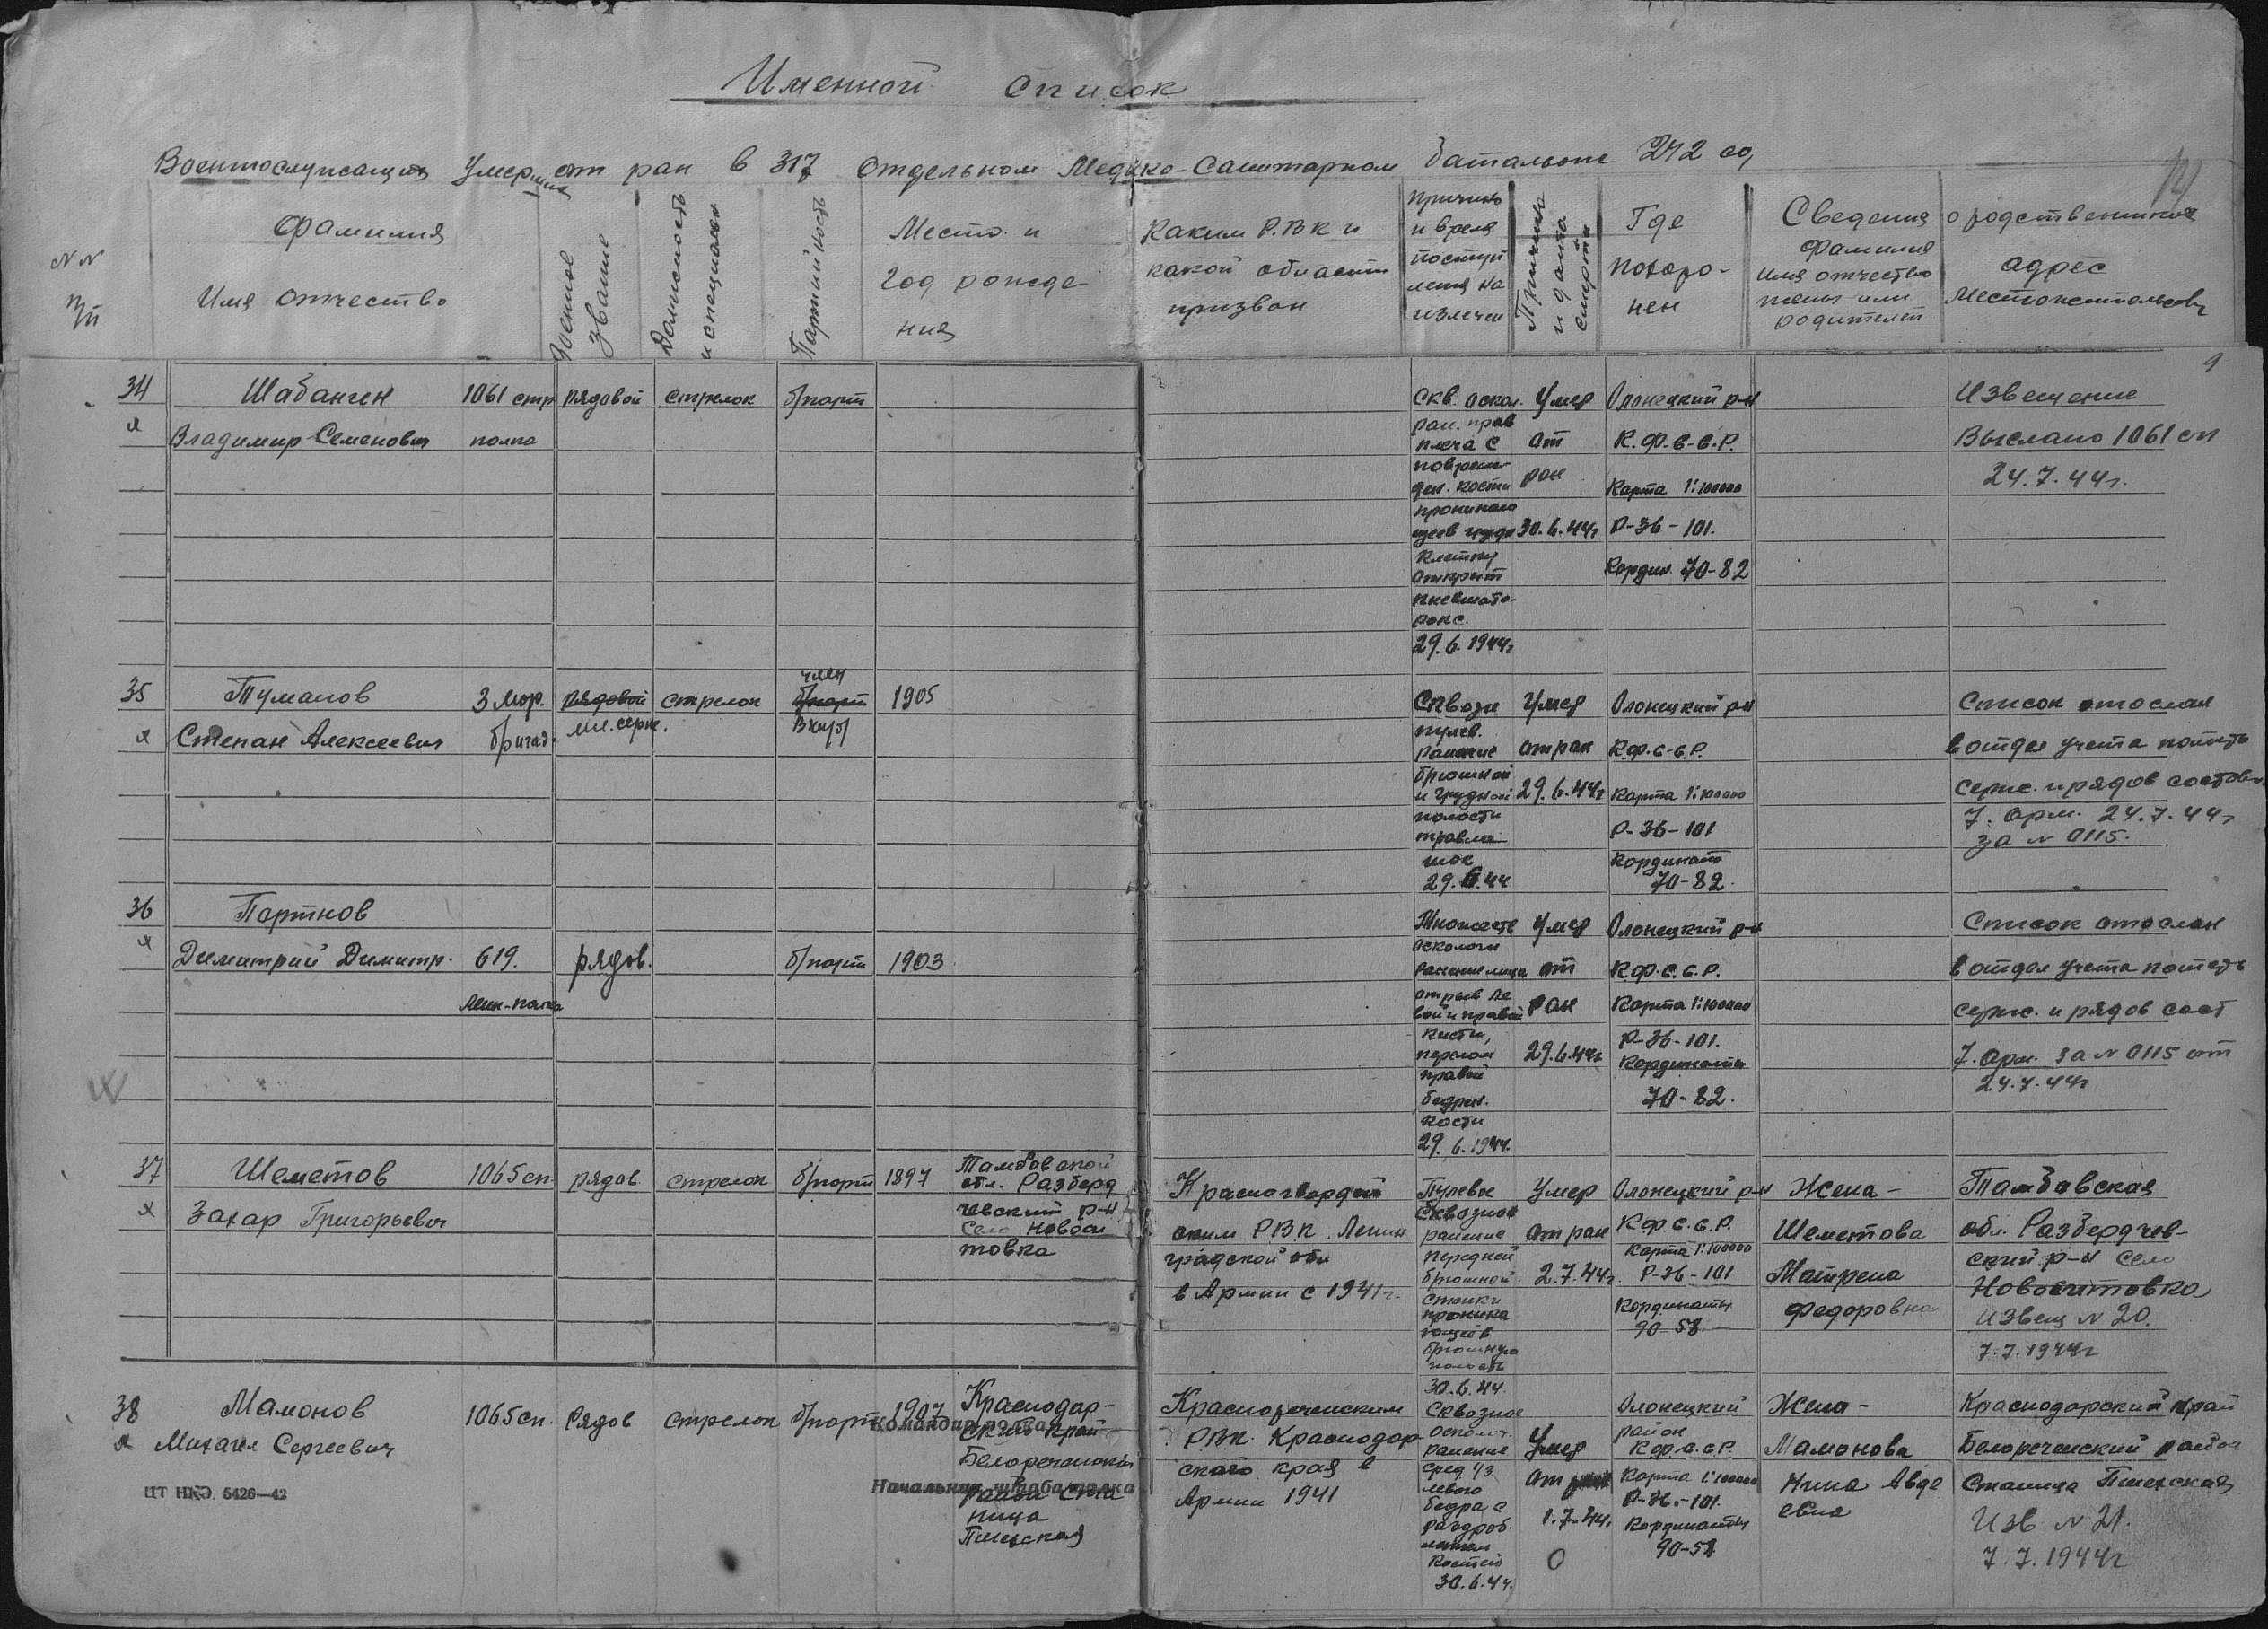 Именной список
Военнослужащих умерших от ран в 317 отдельном Медико-Санитарном батальоне 272 сд
№№ п/п
Фамилия
Имя отчество
Военное звание
Должность и специальн
Партийность
Место и
год рожде
ния
Каким Р.В.К и
какой области
призван
Причина
и время
поступ
ления на
излечен
Причина и дата смерти
Где
похоро-
нен
Сведения о родственниках
Фамилия
имя отчество
жены или
родителей
адрес
местожительства
9
34 Шабанин 1061 стр рядовой стрелок б/парт
Владимир Семенович полка
Скв. оскол.
ран. прав
плеча с
повреж-
ден. кости
проникаю
щее в грудн
клетку
открыт
пневмото-
ракс.
29.6.1944г
Умер
от
ран
30.6.44г
Олонецкий р-н
К.Ф.С.С.Р.
Карта 1:100000
Р-36-101.
Кордин. 70-82
Извещение
Выслано 1061 сп
24.7.44г.
35 Туманов 3 мор. рядовой стрелок б/парт 1905
член
Степан Алексеевич бригад. мл. серж. ВКП/б
Сквозн
пулев.
ранение
брюшной
и грудной
полости
травма
шок
29.6.44
Умер
от ран
29.6.44г
Олонецкий р-н
К.Ф.С.С.Р.
Карта 1:100000
Р-36-101
Кординат
70-82.
Список отослан
в отдел учета потерь
серж. и рядов состава
7. арм. 24.7.44г
за № 0115.
36 Портнов
Димитрий Димитр. 619. рядов. б/парт 1903
Мин-полка
Множеств
осколочн
ранение лица
отрыв ле
вой и правой
кисти,
перелом
правой
бедрен.
кости
29.6.1944.
Умер
от
ран
29.6.44г
Олонецкий р-н
К.Ф.С.С.Р.
Карта 1:100000
Р-36-101.
Кординаты
70-82.
Список отослан
в отдел учета потерь
серж. и рядов сост
7. арм. за № 0115 от
24.7.44г
37 Шеметов 1065 сп рядов стрелок б/парт 1897
Захар Григорьевич
Тамбовской
обл. Разберд
чевский р-н
Село Новоси
товка
Красногвардей
ским РВК Ленин
градской обл
в Армии с 1941г.
Пулевое
сквозное
ранение
передней
брюшной
стенки
проника
ющее в
брюшную
полость
30.6.44
Умер
от ран
2.7.44г.
Олонецкий р-н
К.Ф.С.С.Р.
Карта 1:100000
Р-36-101
Кординаты
90-58
Жена -
Шеметова
Матрена
Федоровна
Тамбовская
обл. Разбердчев-
ский р-н село
Новоситовка
Извещ № 20.
7.7.1944г
38 Мамонов 1065 сп. Рядов стрелок б/парт 1907
Михаил Сергеевич
Краснодар-
ский край
Белореченский
район Ста
ница
Пшехская
Командир полка
Начальник штаба полка
Краснореченским
РВК Краснодар
ского края в
Армии 1941
Сквозное
осколоч.
ранение
сред 1/3
левого
бедра с
раздроб.
лением
костей
30.6.44.
Умер
от ран
1.7.44.
Олонецкий
район
К.Ф.С.С.Р.
Карта 1:100000
Р-36-101.
Кординаты
90-58
Жена -
Мамонова
Нина Авде
евна
Краснодарский край
Белореченский район
Станица Пшехская
Изв № 21.
7.7.1944г
ЦТ НКО. 5426—42